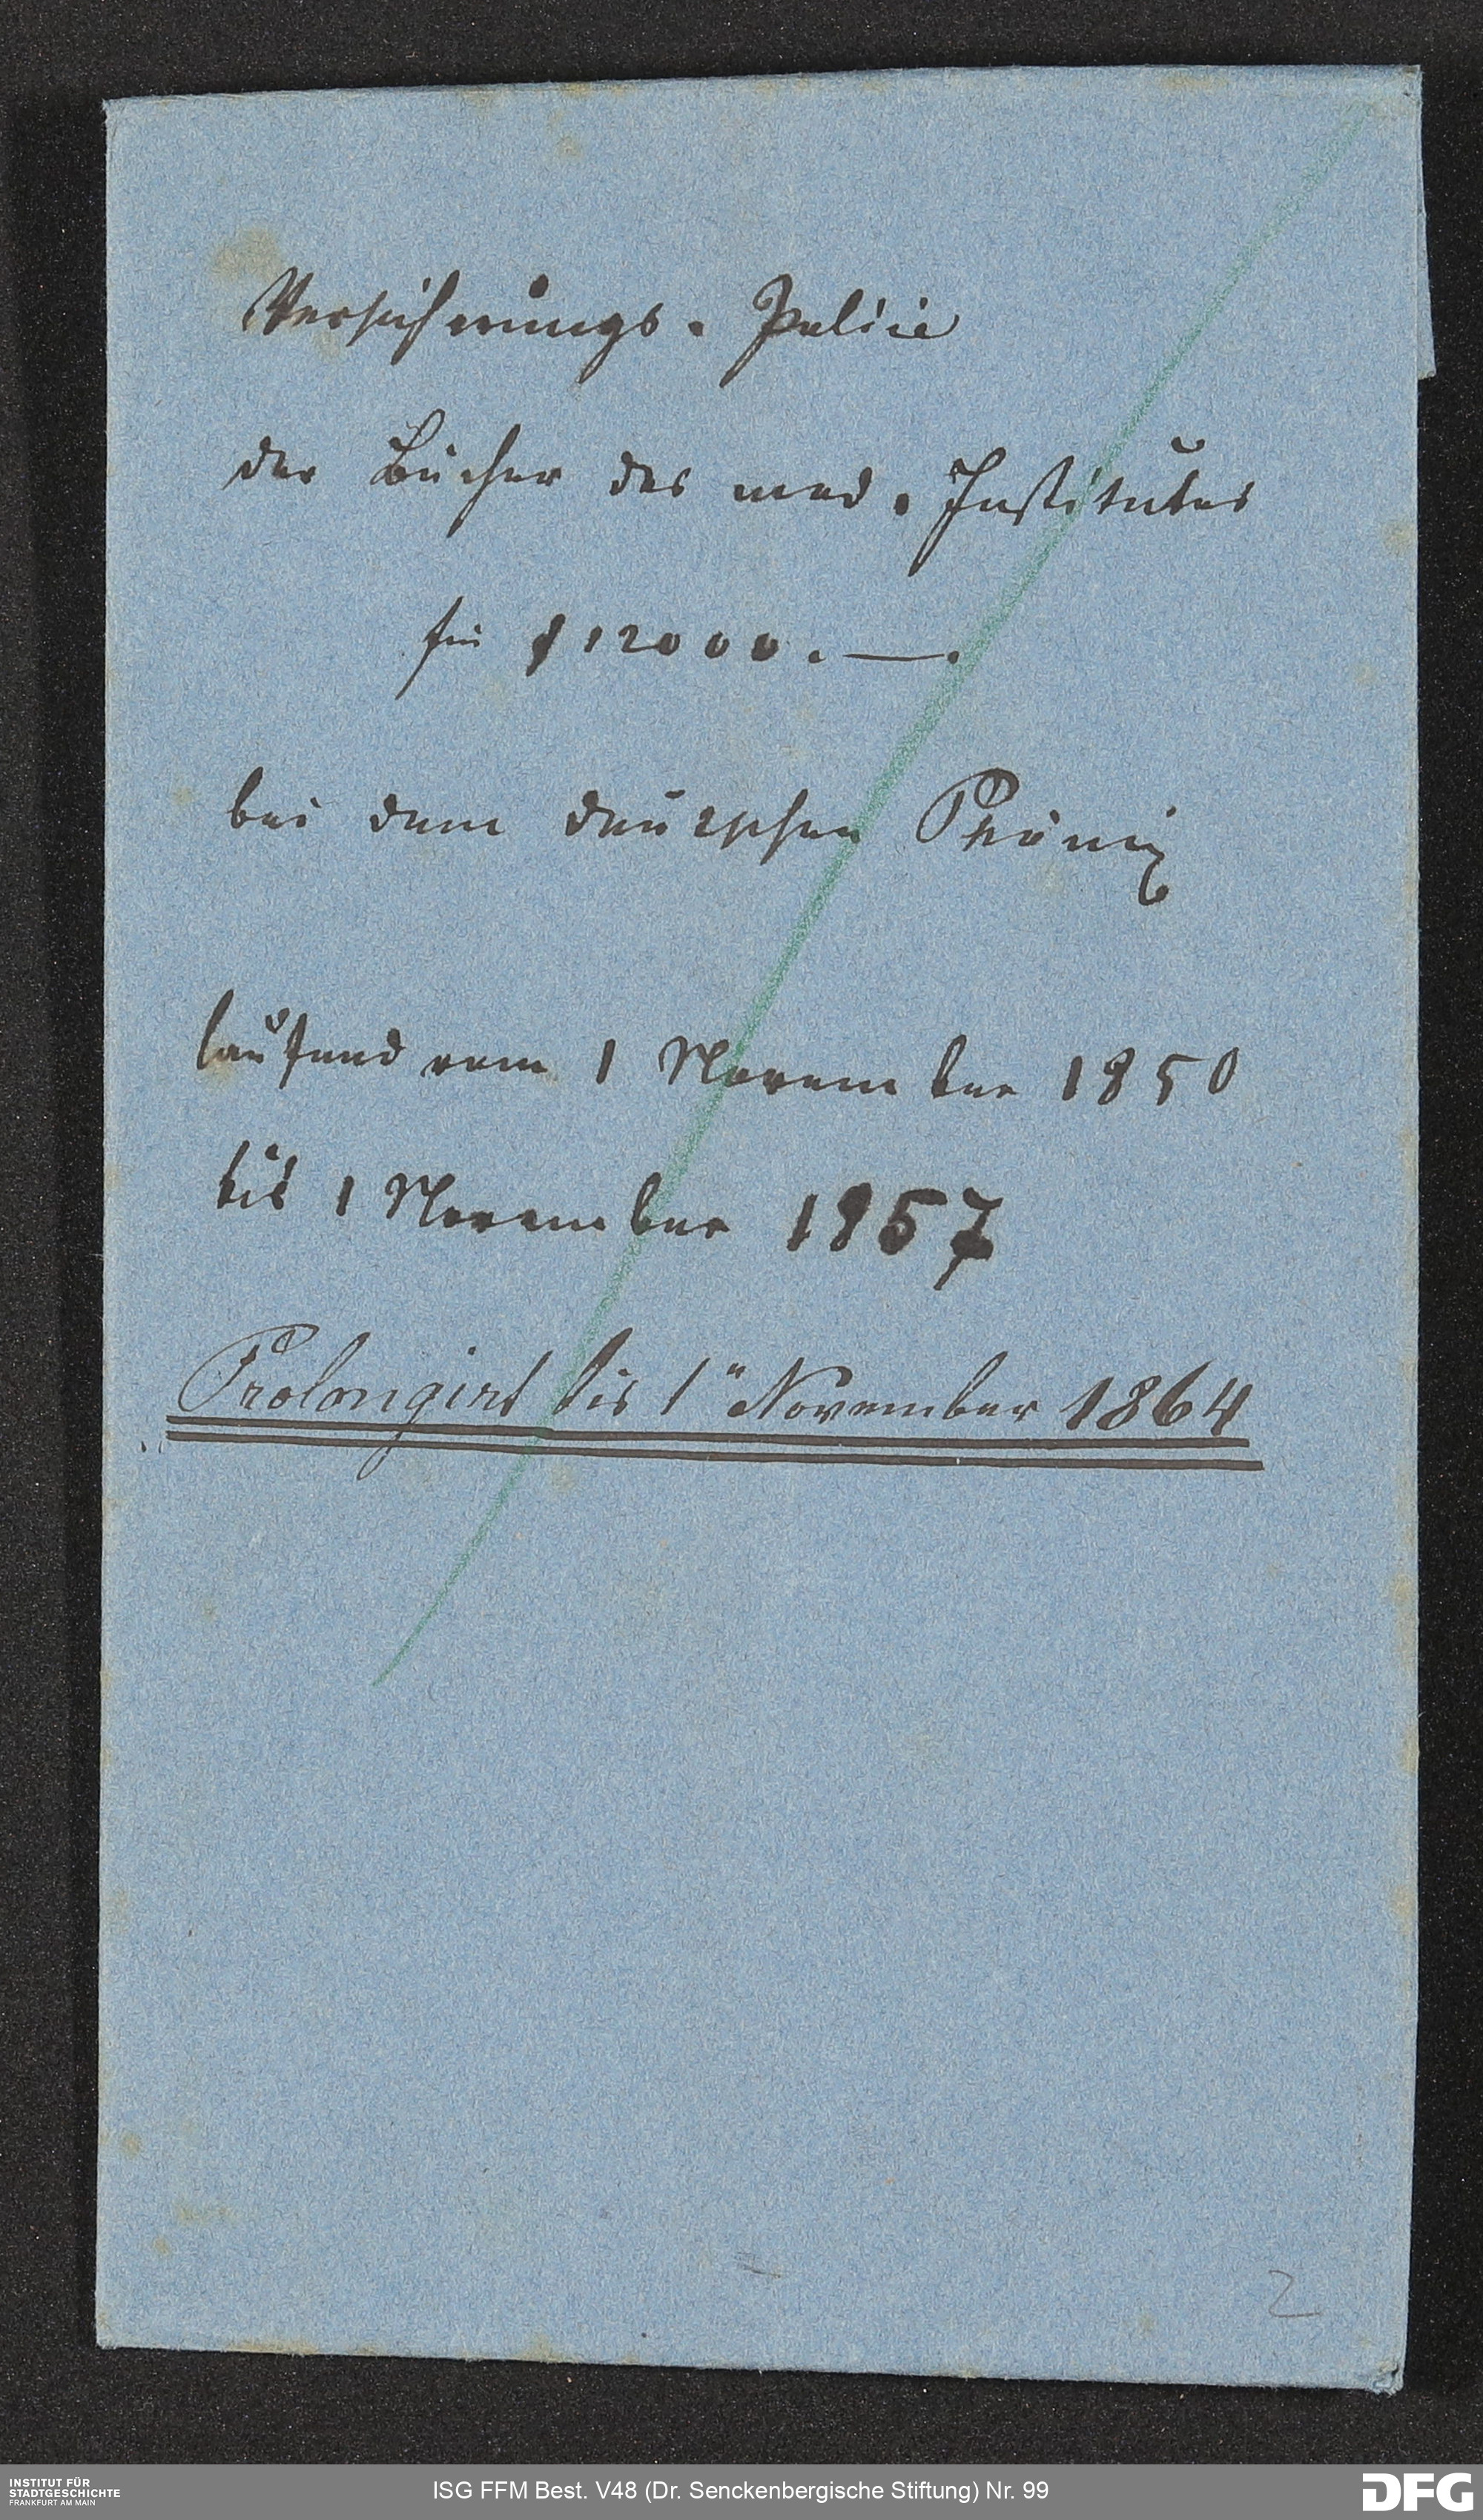 Versicherungs-Police
der Bücher des med. Institutes
für f 12000.—.
bei dem deutschen Phönix
laufend vom 1 November 1850
bis 1 November 1857
Prolongirt bis 1" November 1864
2
INSTITUT FÜR
STADTGESCHICHTE
FRANKFURT AM MAIN
ISG FFM Best. V48 (Dr. Senckenbergische Stiftung) Nr. 99
DFG